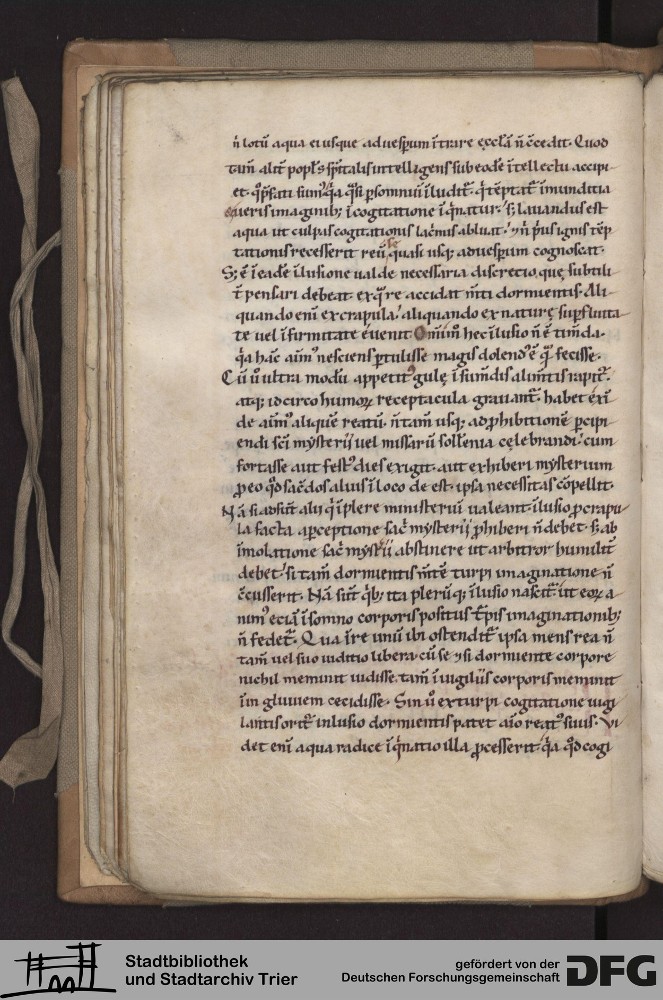 n̄ lotū aqua ei usque ad uesꝑum ītrare ęccłā n̄ c̄cedit. Quod
tam̄ alit̄ popl̓s sp̄italis intelligens sub eodē ītellectu accipi
et. illudit̄ tēptat̄ īmunditia
ueris imaginib; ī cogitatione īq̇natur. s; lauandus est
aqua ut culpas cogitationis lac̄mis abluat. n̄ p̓us ignis tēp
tationis recesserit reū se quasi usq; ad uesꝑum cognoscat.
S; ē ī eadē īlusione ualde necessaria discretio. quę subtili
t̄ pensari debeat. ex q̓ re accidat m̄ti dormientis. Ali
quando eni̅ ex crapula. aliquando ex naturę suꝑfluita
te uel īfirmitate euenit. hec īlusio n̄ ē tim̄da.
q̓a hac aim̄ nesciens ꝑtulisse magis dolend᷒ ē q̄ fecisse.
Cū u̓o ultra modū appetit᷒ gulę ī sum̄dis alim̄tis rapit̄.
atq; idcirco humoꝝ receptacula grauant̄. habet exī
de aim᷒ aliquē reatū. n̄ tam̄ usq; ad ꝓhibitionē ꝑcipi
endi sc̄i mẏsterij uel missarū sollēnia cęlebrandi. cum
fortasse aut fest᷒ dies exigit. aut exhiberi mẏsterium
ꝓ eo q̇d sac̄dos alius ī loco deest. ipsa necessitas cōpellit.
Nā si adsūt alij q̇ īplere ministeriū ualeant. īlusio ꝓ crapu
la facta a ꝑceptione sac̄ mẏsterij ꝓhiberi n̄ debet. s; ab
īmolatione sac̄ mẏsterii abstinere ut arbitror humilit̄
debet. si tam̄ dormientis m̄tē turpi imaginatione n̄
c̄cusserit. Nā sūt q̇b; ita plerūq; īlusio nascit̄. ut eoꝝ a
nim᷒ eciā ī somno corporis positus t̄pis imaginationib;
n̄ fedet̄. Qua ī re unū ibi ostendit̄ ipsa mens rea n̄
tam̄ uel suo iuditio libera. cū se & si dormiente corpore
nichil meminit uidisse. tam̄ ī uigiliis corporis meminit
ī īngluuiem cecidisse. Sin u̓o ex turpi cogitatione uigi
lantis orit̄ inlusio dormientis patet aīo reat᷒ suus. Vi
det eni̅ a qua radice īq̇natio illa ꝓcesserit. q̓a q̇d cogi
Stadtbibliothek
und Stadtarchiv Trier
gefördert von der
Deutschen Forschungsgemeinschaft
DFG